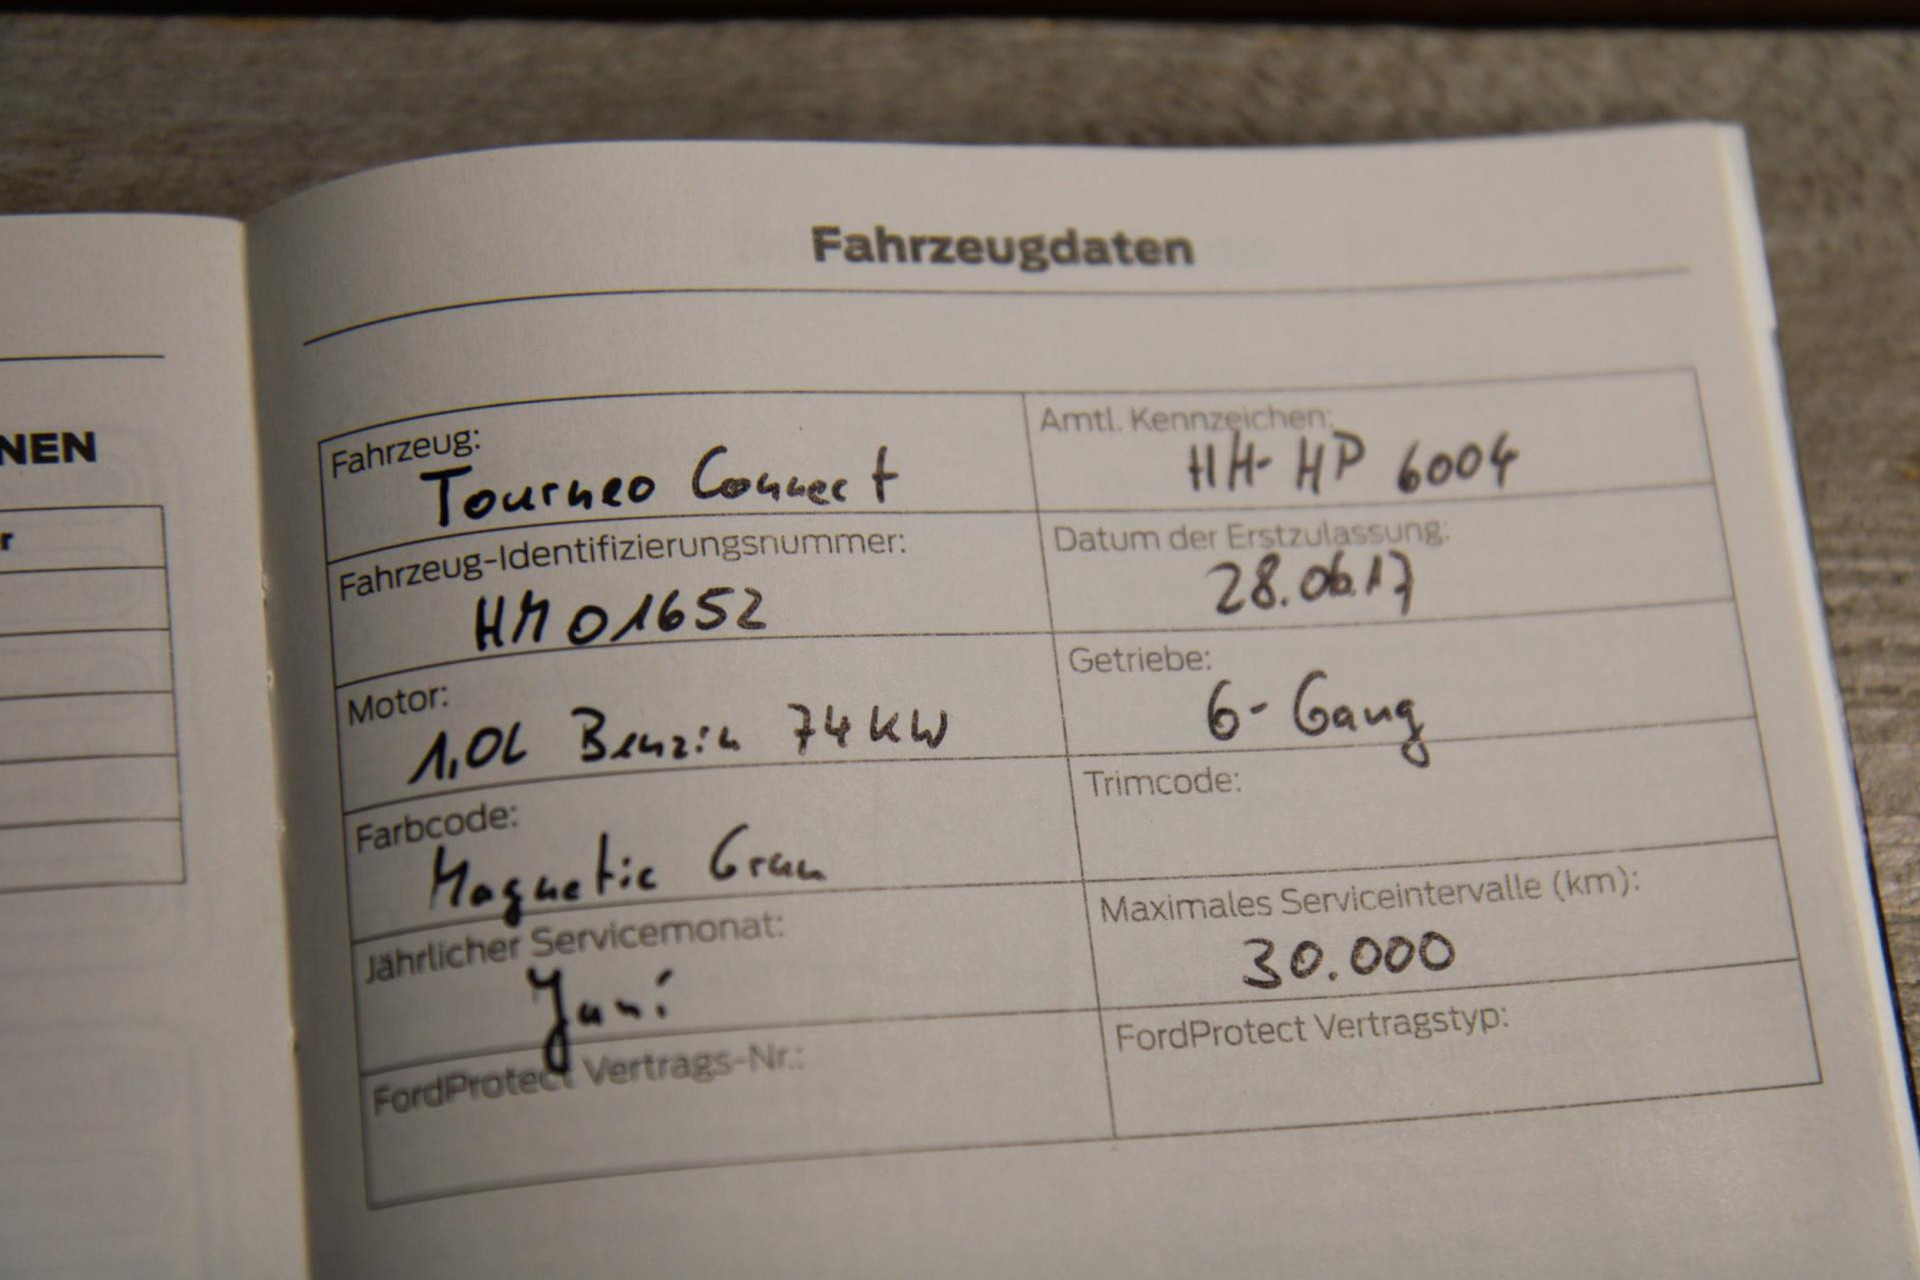 NEN
r
Fahrzeugdaten
Fahrzeug:
Tourneo Connect
Amtl. Kennzeichen:
HH-HP 6004
Fahrzeug-Identifizierungsnummer:
HM01652
Datum der Erstzulassung:
28.06.17
Motor:
1,0L Benzin 74KW
Getriebe:
6-Gang
Farbcode:
Magnetic Grau
Trimcode:
Jährlicher Servicemonat:
Juni
Maximales Serviceintervalle (km):
30.000
FordProtect Vertrags-Nr.:
FordProtect Vertragstyp: